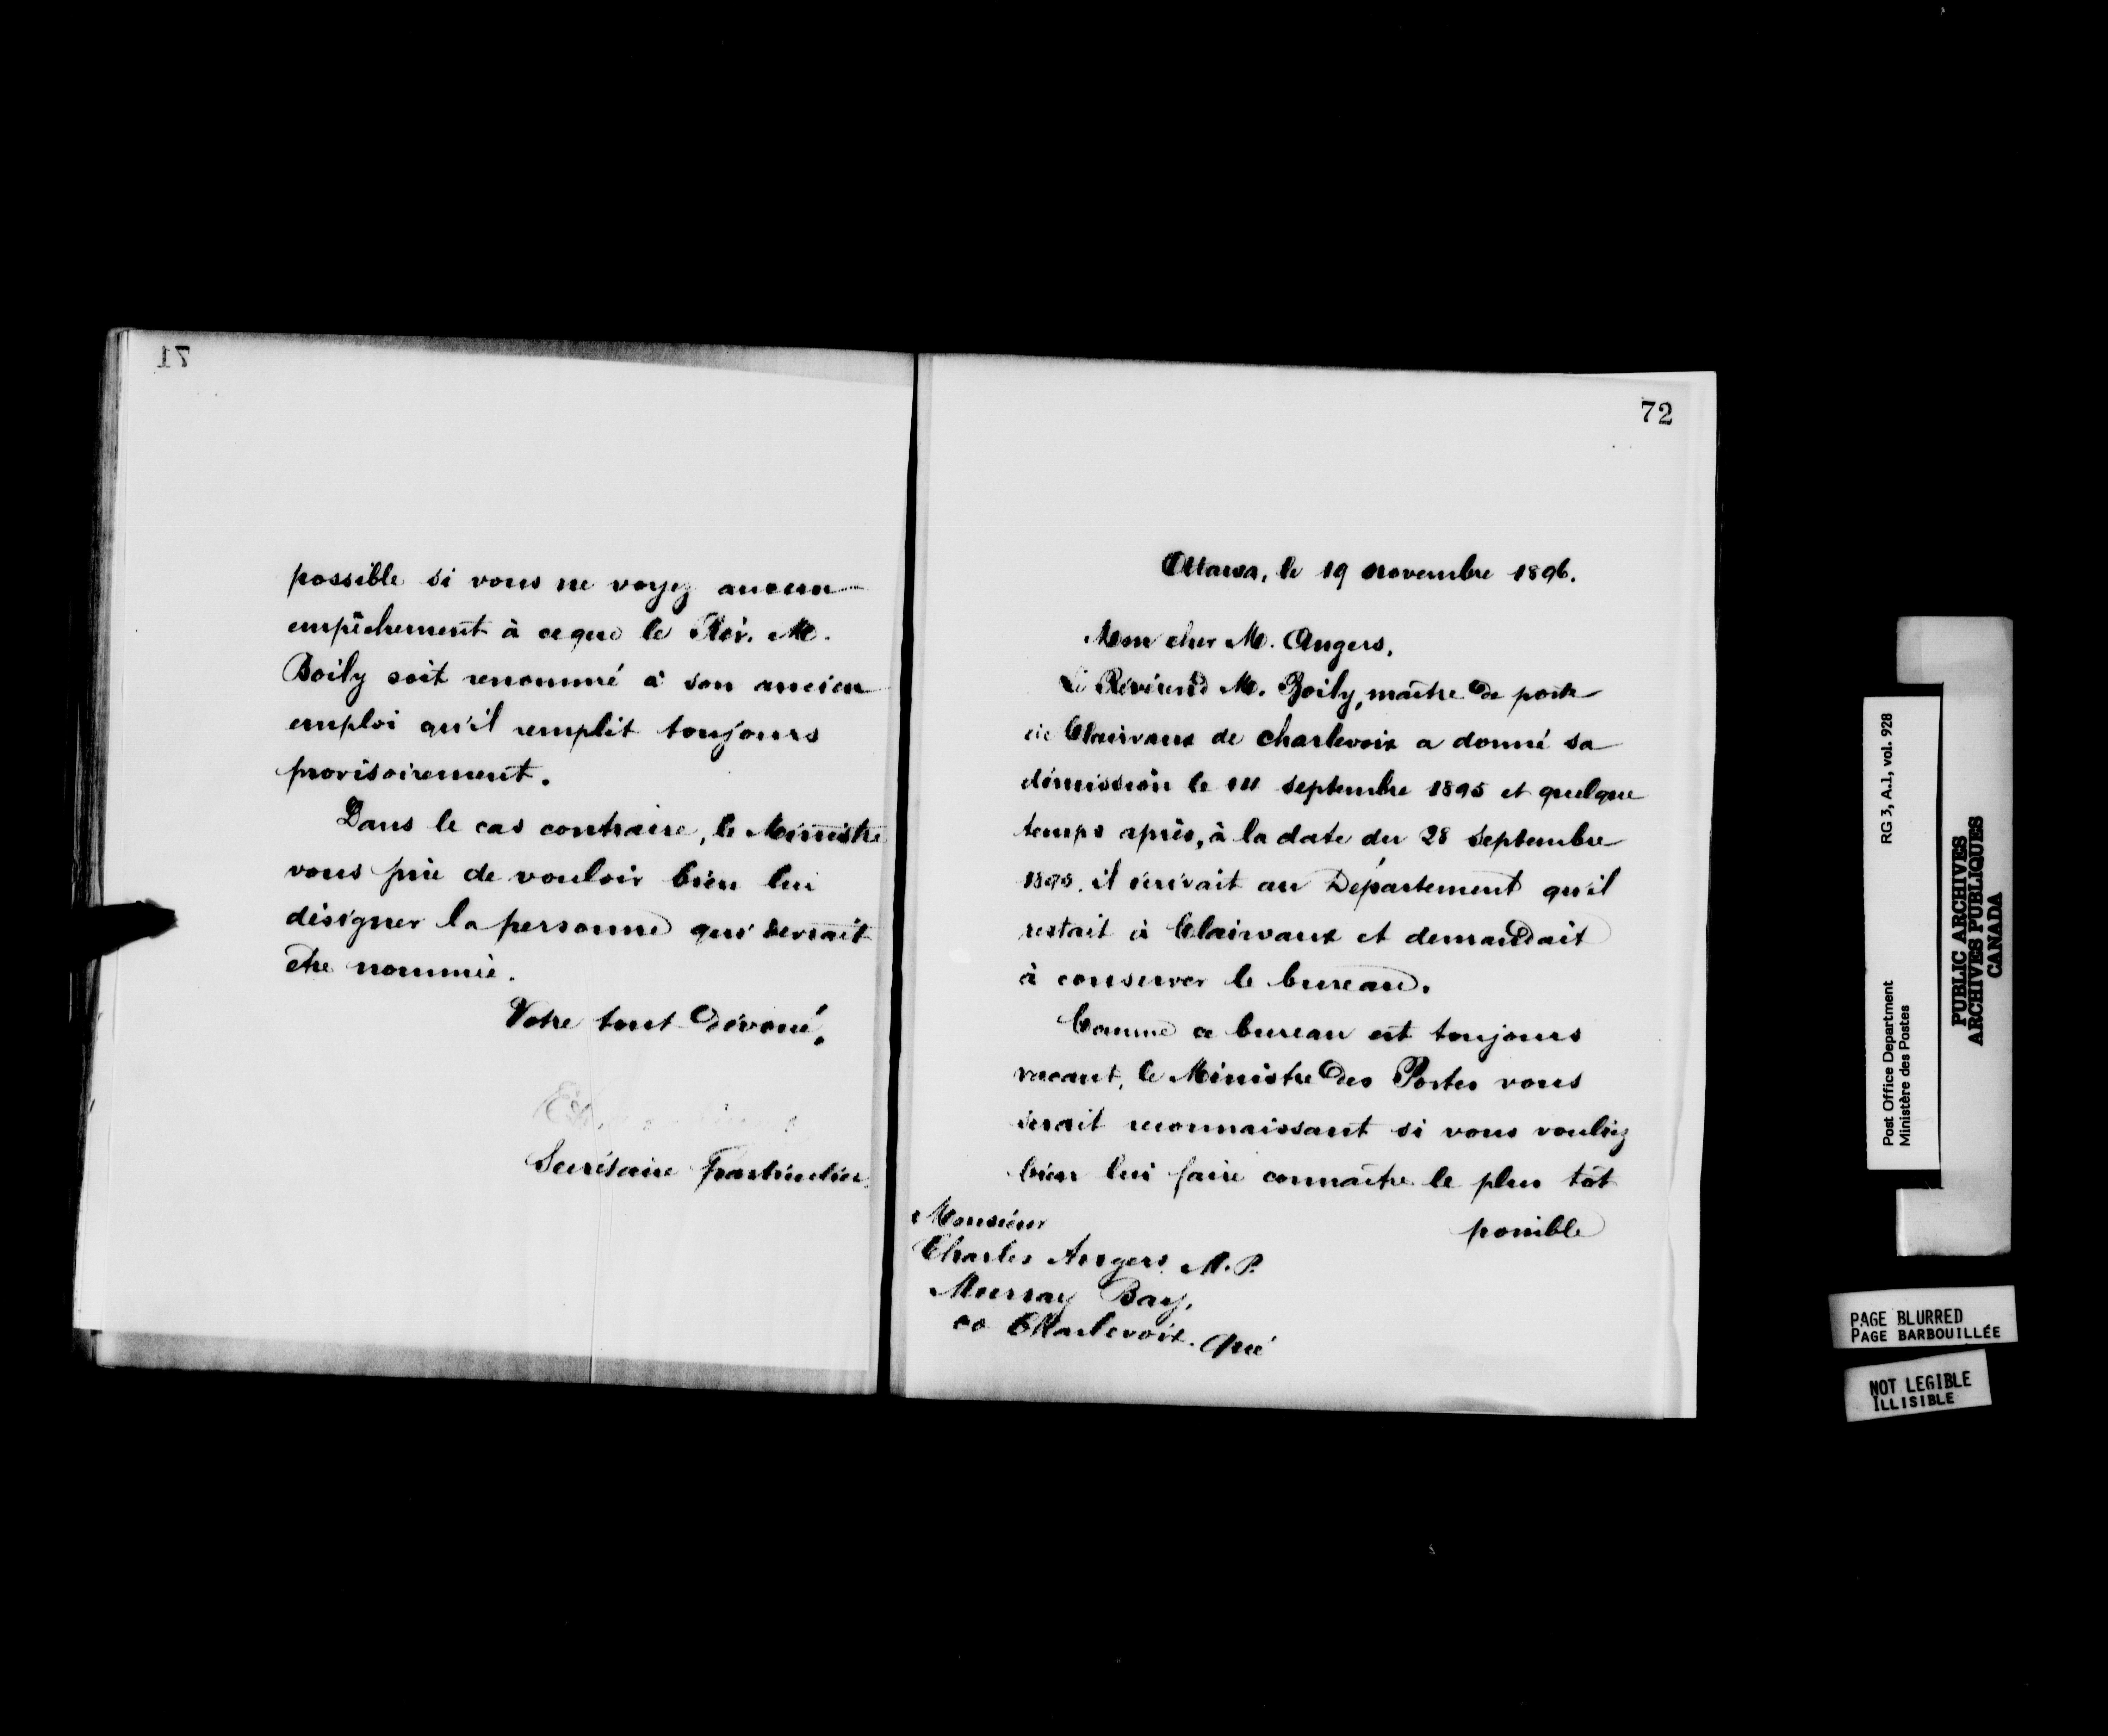 71
possible si vous ne voyez aucun
empêchement à ce que le Rév. M.
Boily soit renommé à son ancien
emploi qu'il remplit toujours
provisoirement.
Dans le cas contraire, le Ministre
vous prie de vouloir bien lui
désigner la personne qui devrait
être nommée.
Votre tout dévoué,
Secrétaire Particulier.
72
Ottawa, le 19 novembre 1896.
Mon cher M. Angers,
Le Révérend M. Boily, maître de poste
de Clairvaux de Charlevoix a donné sa
démission le 14 septembre 1895 et quelque
temps après, à la date du 28 septembre
1895, il écrivait au Département qu'il
restait à Clairvaux et demandait
à conserver le bureau.
Comme ce bureau est toujours
vacant, le Ministre des Postes vous
serait reconnaissant si vous vouliez
bien lui faire connaître le plus tôt
possible
Monsieur
Charles Angers M.P.
Murray Bay,
co Charlevoix. Qué
RG 3, A.1, vol. 928
Post Office Department
Ministère des Postes
PUBLIC ARCHIVES
ARCHIVES PUBLIQUES
CANADA
PAGE BLURRED
PAGE BARBOUILLÉE
NOT LEGIBLE
ILLISIBLE